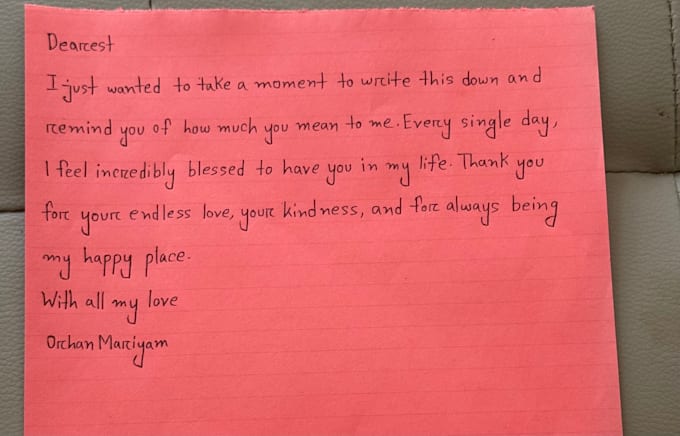 Dearest
I just wanted to take a moment to write this down and
remind you of how much you mean to me. Every single day,
I feel incredibly blessed to have you in my life. Thank you
for your endless love, your kindness, and for always being
my happy place.
With all my love
Orchan Mariyam